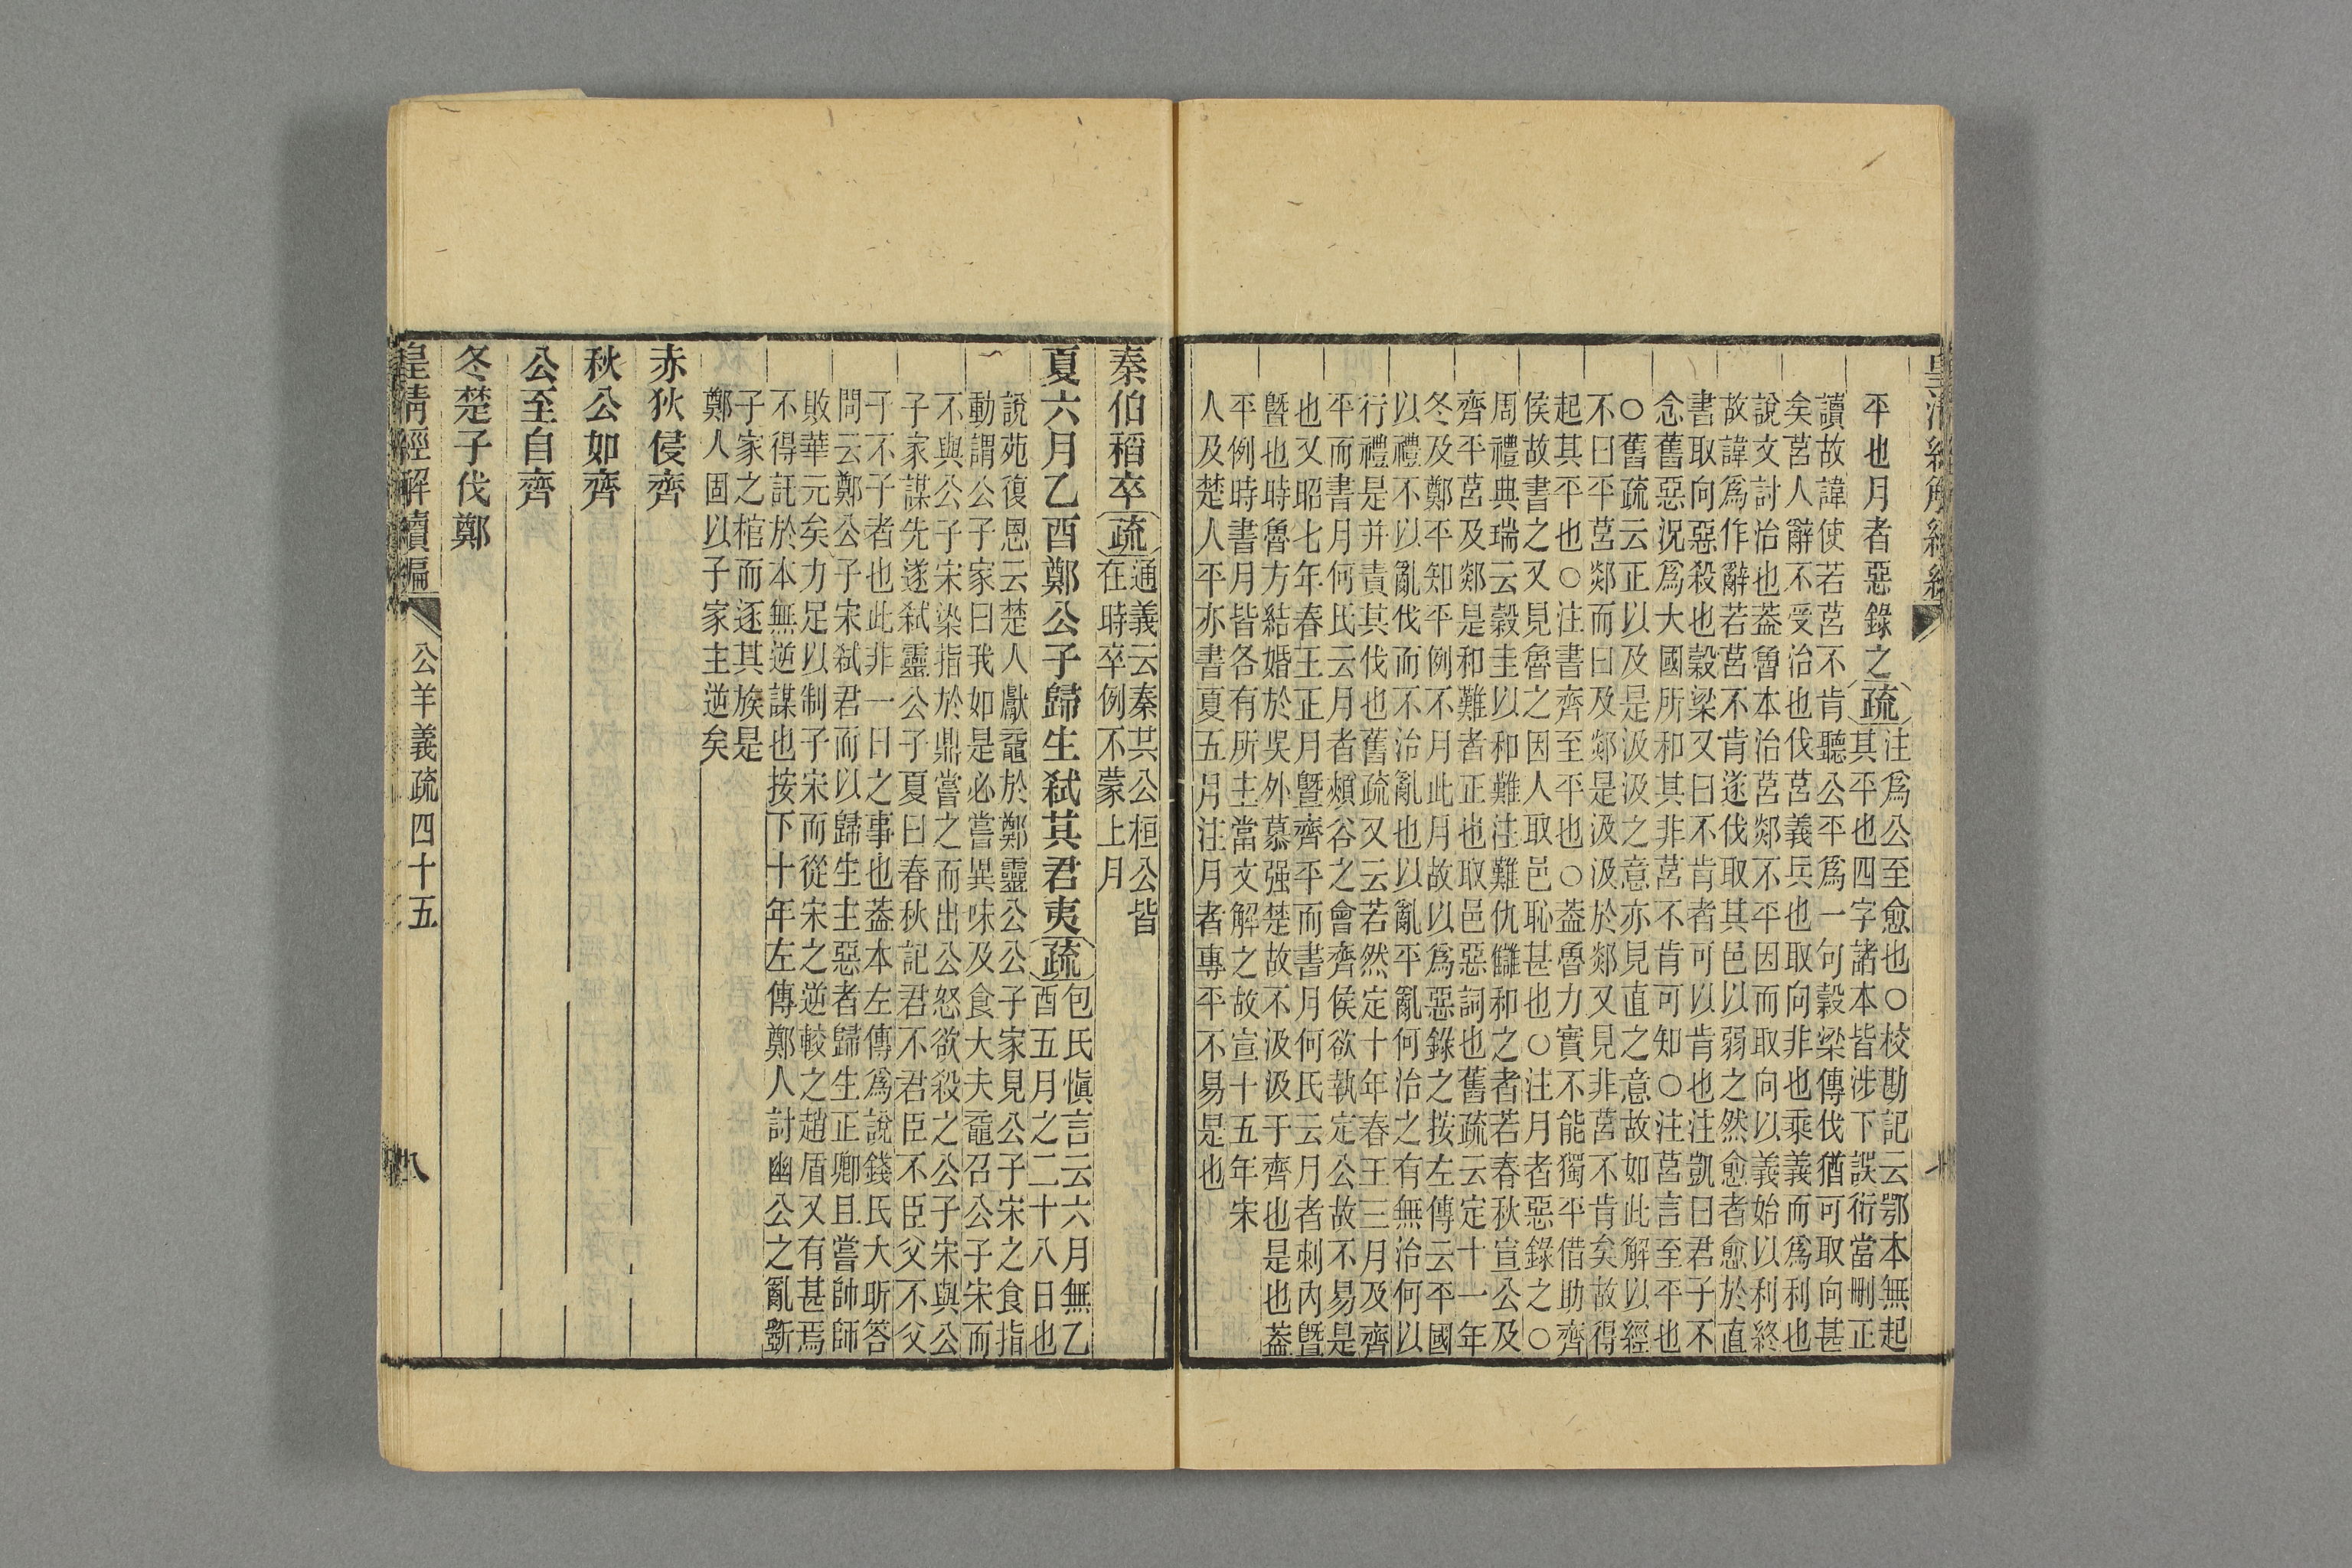 皇清經解續編
平也月者惡錄之疏注爲公至愈也○校勘記云鄂本無起
其平也四字諸本皆涉下誤衍當刪正
讀故諱使若莒不肯聽公平爲一句穀梁傳伐猶可取向甚
矣莒人辭不受治也伐莒義兵也取向非也乘義而爲利也
說文討治也葢魯本治莒郯不平因而取向以義始以利終
故諱爲作辭若莒不肯遂伐取其邑以弱之然愈者愈於直
書取向惡殺也穀梁又曰不肯者可以肯也注凱曰君子不
念舊惡況爲大國所和其非莒不肯可知○注莒言至平也
○舊疏云正以及是汲汲之意亦見直之意故如此解以經
不曰平莒郯而曰及郯是汲汲於郯又見非莒不肯矣故得
起其平也○注書齊至平也○葢魯力實不能獨平借助齊
侯故書之又見魯之因人取邑恥甚也○注月者惡錄之○
周禮典瑞云穀圭以和難注難仇讎和之者若春秋宣公及
齊平莒及郯是和難者正也取邑惡詞也舊疏云定十一年
冬及鄭平知平例不月此月故以爲惡錄之按左傳云平國
以禮不以亂伐而不治亂也以亂平亂何治之有無治何以
行禮是并責其伐也舊疏又云若然定十年春王三月及齊
平而書月何氏云月者頰谷之會齊侯欲執定公故不易是
也又昭七年春王正月曁齊平而書月何氏云月者刺內曁
曁也時魯方結婚於吳外慕强楚故不汲汲于齊也是也葢
平例時書月皆各有所主當文解之故宣十五年宋
人及楚人平亦書夏五月注月者專平不易是也
秦伯稻卒疏通義云秦共公桓公皆
在時卒例不蒙上月
夏六月乙酉鄭公子歸生弒其君夷疏包氏愼言云六月無乙
酉五月之二十八日也
說苑復恩云楚人獻黿於鄭靈公公子家見公子宋之食指
動謂公子家曰我如是必嘗異味及食大夫黿召公子宋而
不與公子宋染指於鼎嘗之而出公怒欲殺之公子宋與公
子家謀先遂弒靈公子夏曰春秋記君不君臣不臣父不父
子不子者也此非一日之事也葢本左傳爲說錢氏大昕答
問云鄭公子宋弒君而以歸生主惡者歸生正卿且嘗帥師
敗華元矣力足以制子宋而從宋之逆較之趙盾又有甚焉
不得託於本無逆謀也按下十年左傳鄭人討幽公之亂斲
子家之棺而逐其族是
鄭人固以子家主逆矣
赤狄侵齊
秋公如齊
公至自齊
冬楚子伐鄭
皇清經解續編 公羊義疏四十五 八